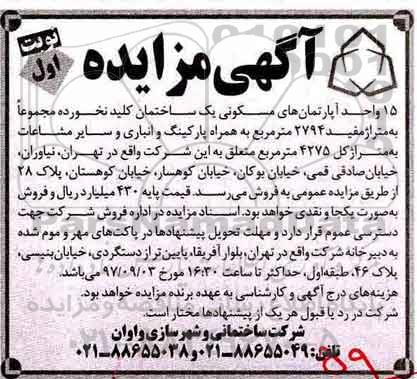 آگهی مزایده
نوبت اول
۱۵ واحد آپارتمان‌های مسکونی یک ساختمان کلید نخورده مجموعاً
به‌متراژ مفید ۲۷۹۴ مترمربع به همراه پارکینگ و انباری و سایر مشاعات
به‌متراژ کل ۴۲۷۵ مترمربع متعلق به این شرکت واقع در تهران، نیاوران،
خیابان صادقی قمی، خیابان بوکان، خیابان کوهسار، خیابان کوهستان، پلاک ۲۸
از طریق مزایده عمومی به فروش می‌رسد. قیمت پایه ۴۳۰ میلیارد ریال و فروش
به‌صورت یکجا و نقدی خواهد بود. اسناد مزایده در اداره فروش شرکت جهت
دسترسی عموم قرار دارد و مهلت تحویل پیشنهادها در پاکت‌های مهر و موم شده
به دبیرخانه شرکت واقع در تهران، بلوار آفریقا، پایین‌تر از دستگردی، خیابان بنیسی،
پلاک ۴۶، طبقه اول، حداکثر تا ساعت ۱۶:۳۰ مورخ ۹۷/۰۹/۰۳ می‌باشد.
هزینه‌های درج آگهی و کارشناسی به عهده برنده مزایده خواهد بود.
شرکت در رد یا قبول هر یک از پیشنهادها مختار است.
شرکت ساختمانی و شهرسازی واوان
تلفن: ۸۸۶۵۵۰۴۹-۰۲۱ و ۸۸۶۵۵۰۳۸-۰۲۱